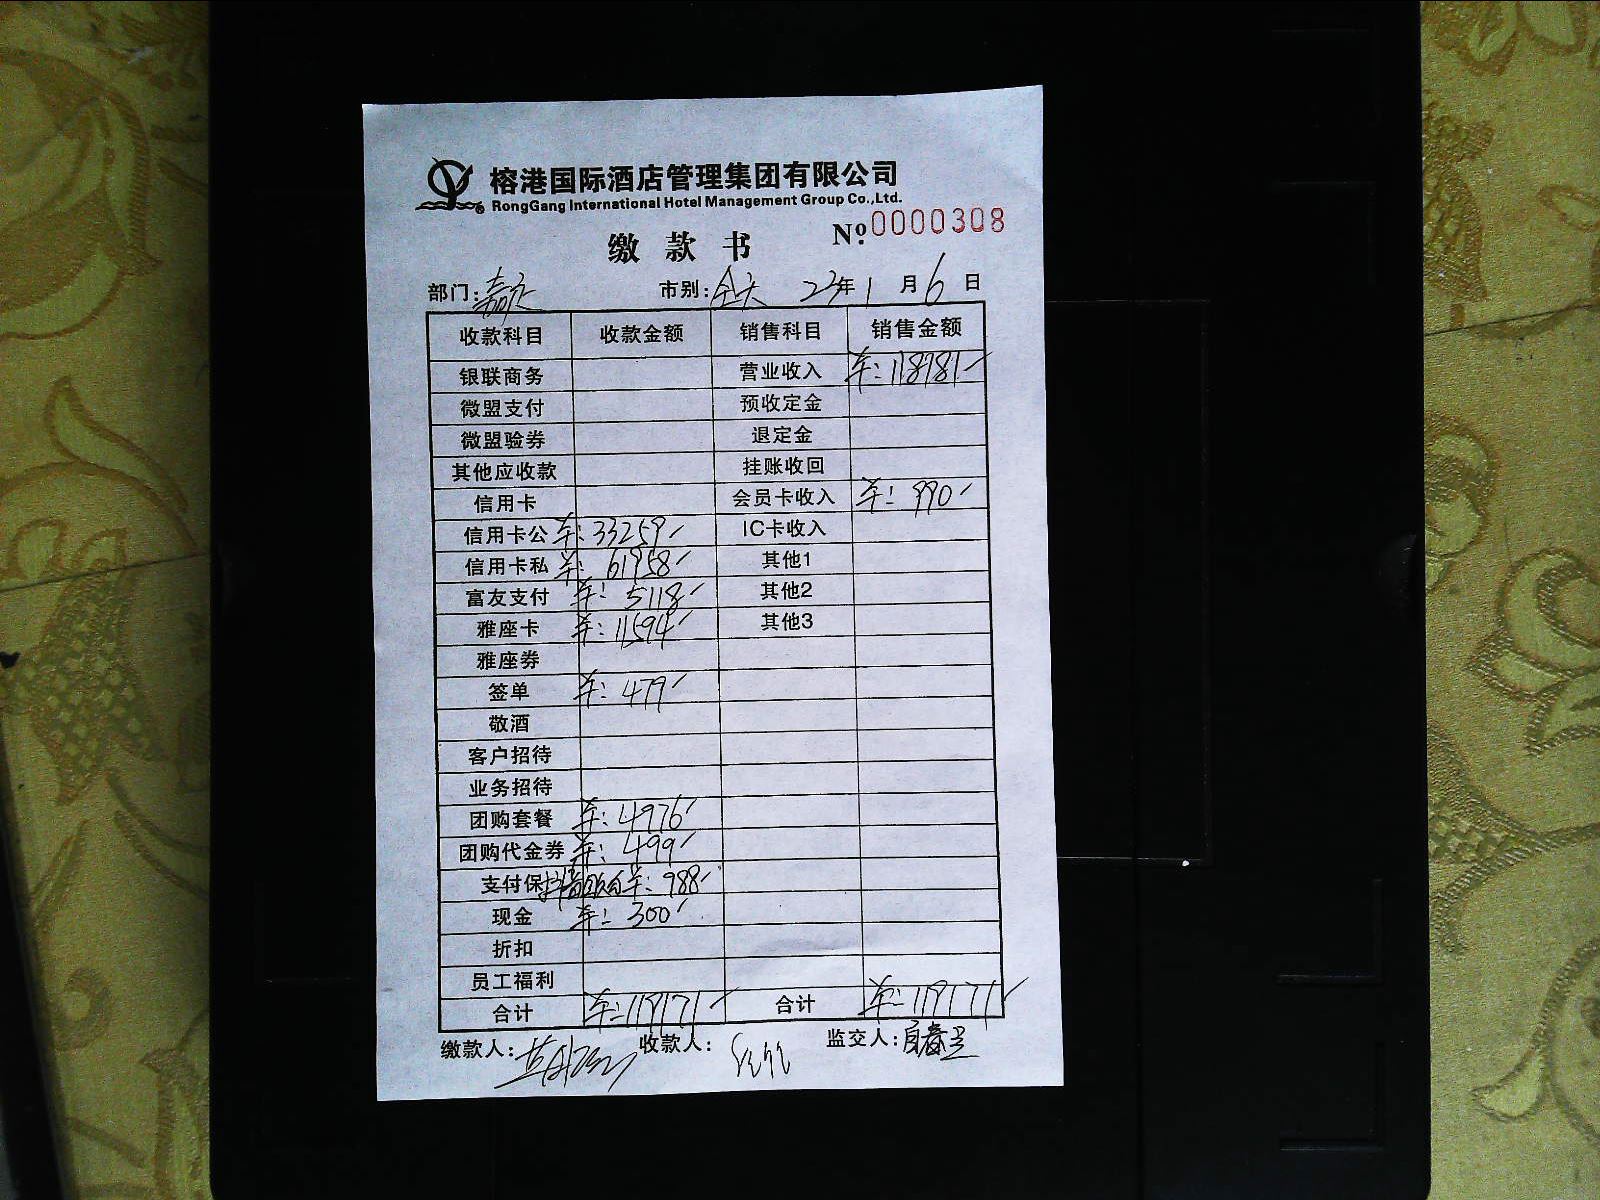 榕港国际酒店管理集团有限公司
RongGang International Hotel Management Group Co.,Ltd.
缴款书 № 0000308
部门: 嘉定 市别: 全天 23年 1月 6日
收款科目 收款金额 销售科目 销售金额
银联商务 营业收入 ¥: 118181
微盟支付 预收定金
微盟验券 退定金
其他应收款 挂账收回
信用卡 会员卡收入 ¥: 990
信用卡公 ¥: 33259 IC卡收入
信用卡私 ¥: 61958 其他1
富友支付 ¥: 5118 其他2
雅座卡 ¥: 11594 其他3
雅座券
签单 ¥: 479
敬酒
客户招待
业务招待
团购套餐 ¥: 4976
团购代金券 ¥: 499
支付保 ¥: 988
现金 ¥: 300
折扣
员工福利
合计 ¥: 119171 合计 ¥: 119171
缴款人: 收款人: 监交人: